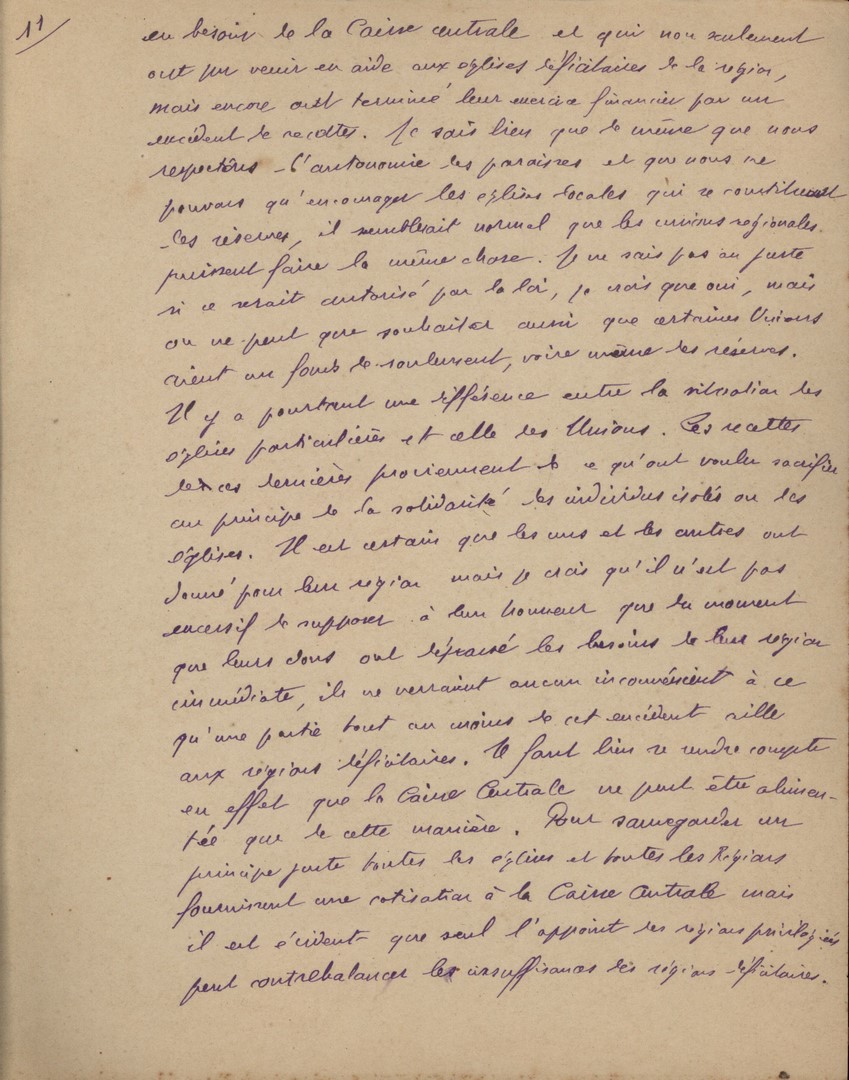 11/
en besoin de la Caisse centrale et qui non seulement
ont pu venir en aide aux églises déficitaires de la région,
mais encore ont terminé leur exercice financier par un
excédent de recettes. Je sais bien que de même que nous
respectons l'autonomie des paroisses et que nous ne
pouvons qu'encourager les églises locales qui se constituent
des réserves, il semblerait normal que les unions régionales
puissent faire la même chose. Je ne sais pas au juste
si ce serait autorisé par la loi, je crois que oui, mais
on ne peut que souhaiter aussi que certaines Unions
aient un fonds de roulement, voire même des réserves.
Il y a pourtant une différence entre la situation des
églises particulières et celle des Unions. Les recettes
de ces dernières proviennent de ce qu'ont voulu sacrifier
au principe de la solidarité des individus isolés ou des
églises. Il est certain que les uns et les autres ont
donné pour leur région mais je crois qu'il n'est pas
excessif de supposer à leur honneur que du moment
que leurs dons ont dépassé les besoins de leur région
immédiate, ils ne verraient aucun inconvénient à ce
qu'une partie tout au moins de cet excédent aille
aux régions déficitaires. Il faut bien se rendre compte
en effet que la Caisse Centrale ne peut être alimen-
tée que de cette manière. Pour sauvegarder un
principe juste toutes les églises et toutes les Régions
fournissent une cotisation à la Caisse Centrale mais
il est évident que seul l'appoint des régions privilégiées
peut contrebalancer les insuffisances des régions déficitaires.